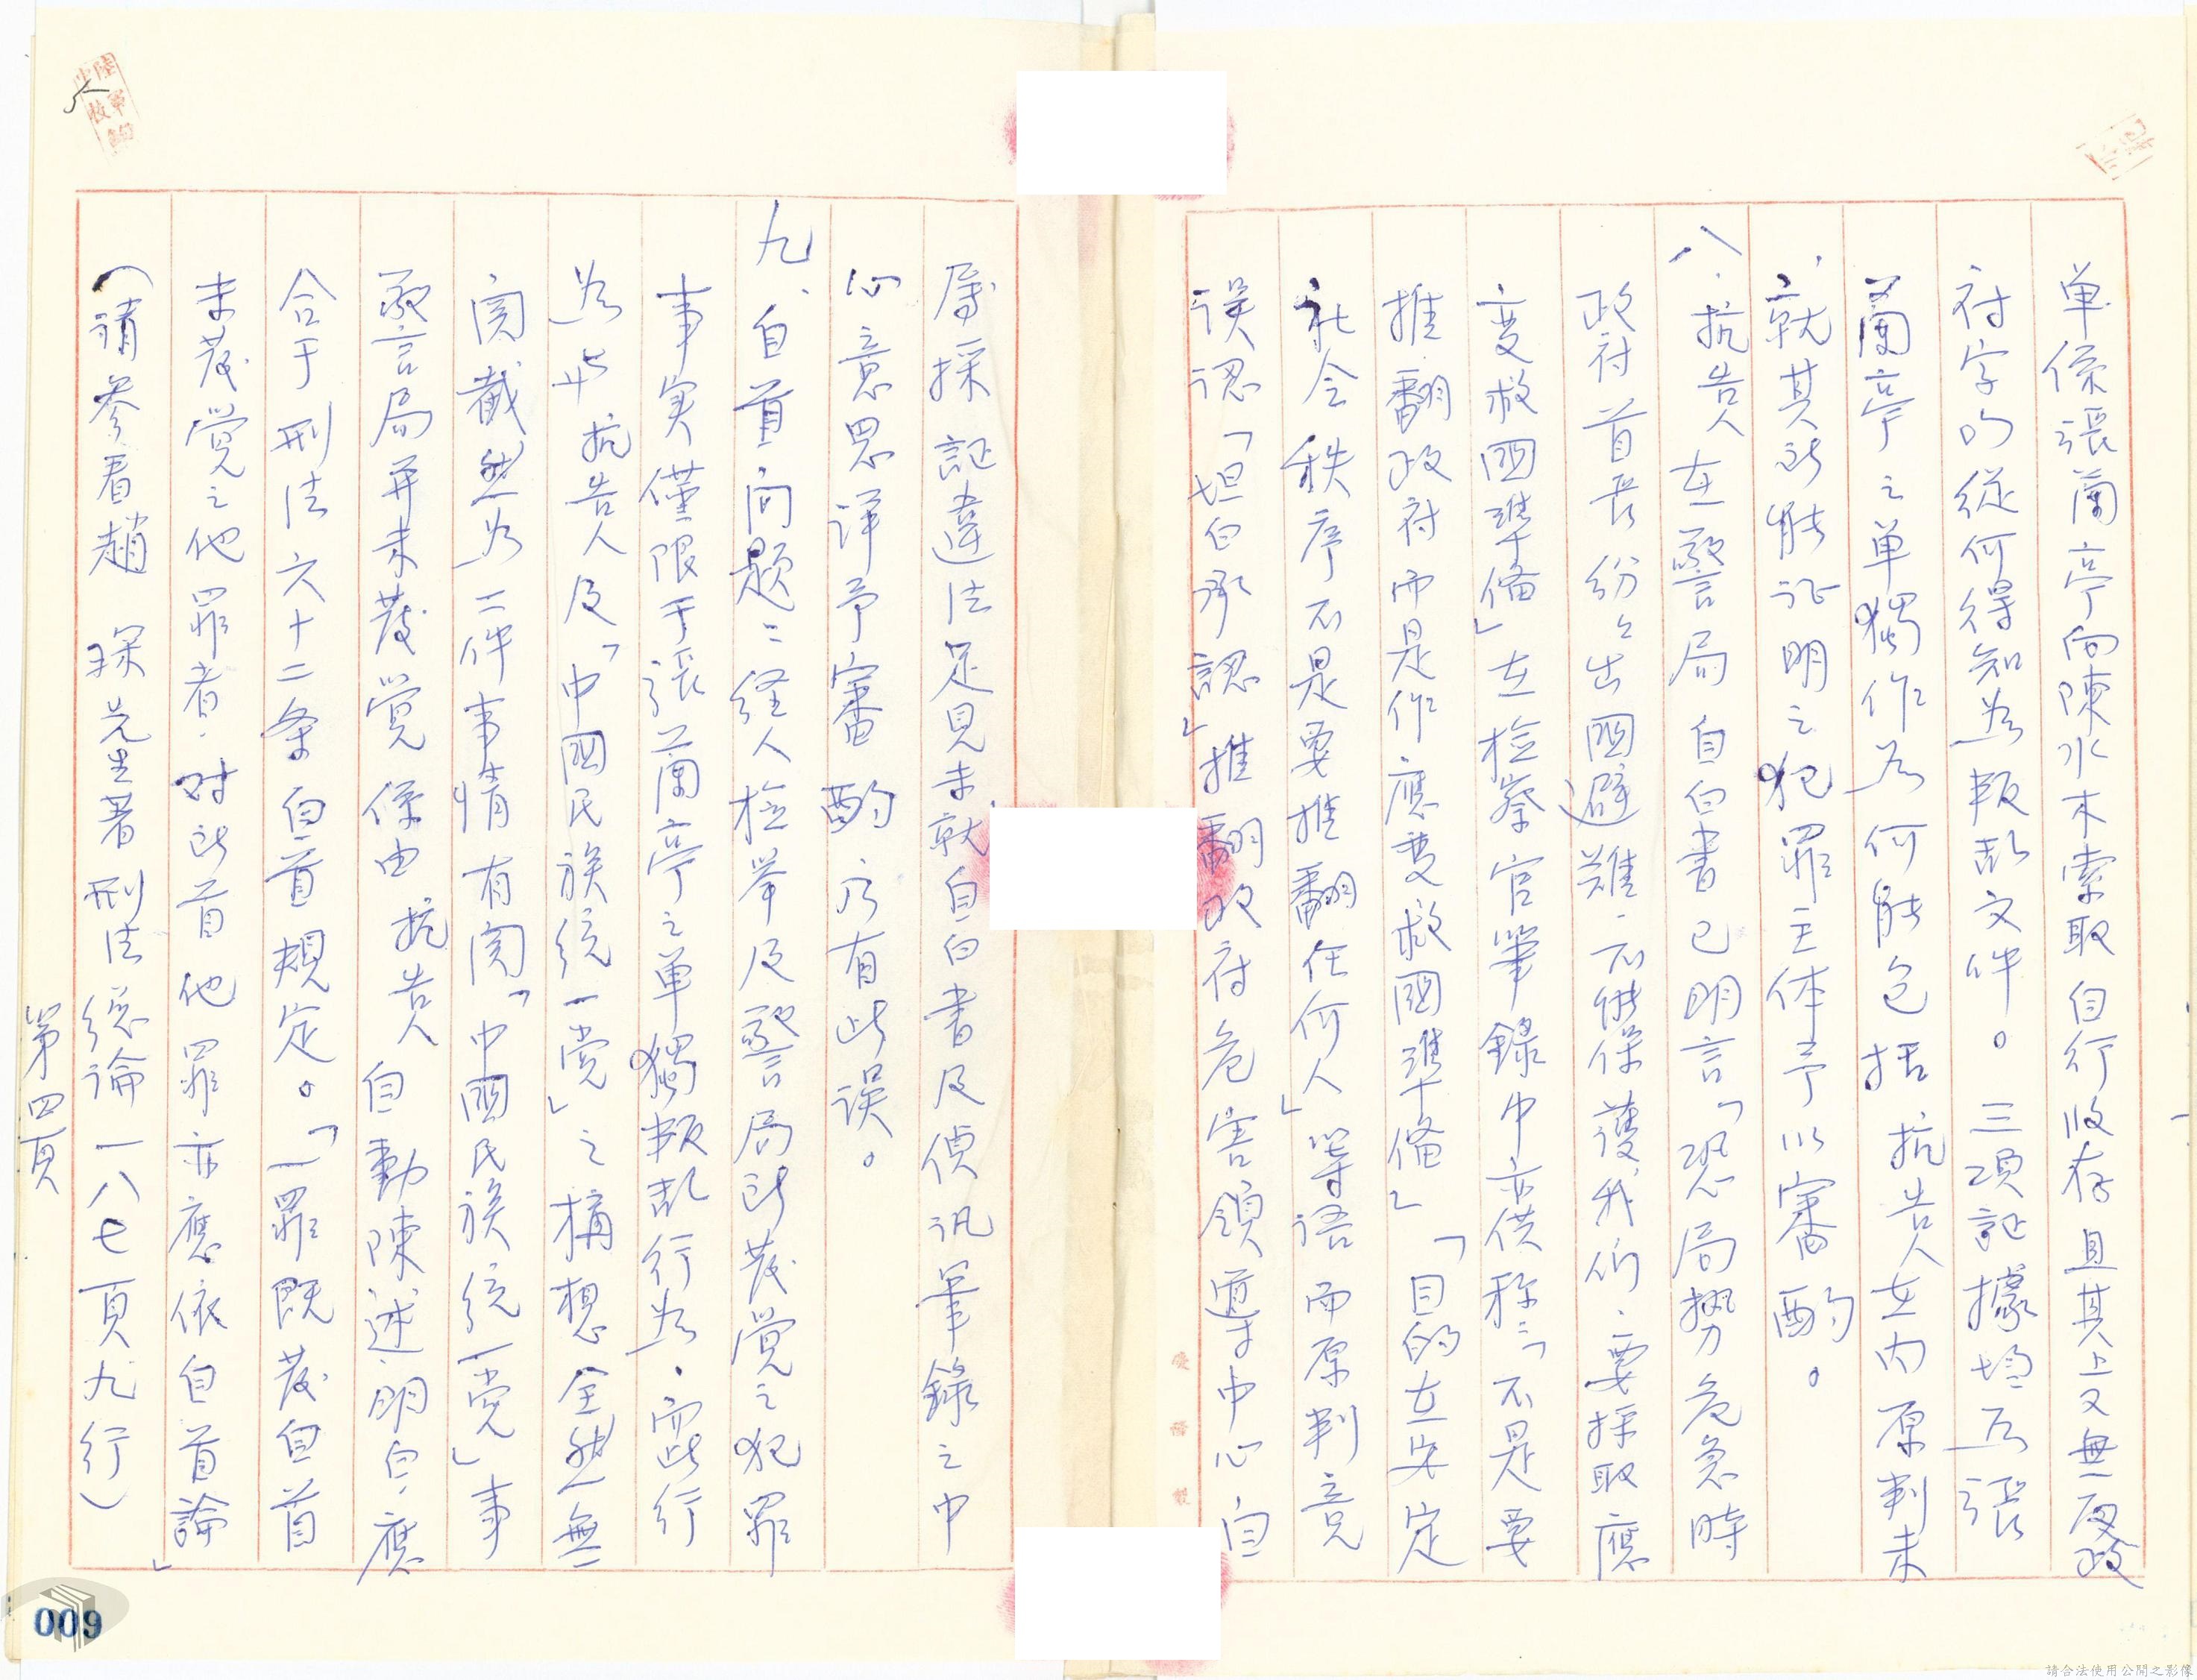 单係張蘭亭向陳水木索取自行收存且其上又無反政
府字的從何得知為叛乱文件。三項証據均為張
蘭亭之单獨作為何能包括抗告人在内原判未
就其所能証明之犯罪主体予以審酌。
八、抗告人在警局自白書已明言「恐局勢危急時
政府首長紛々出國避難、不能保護我們、要採取應
変救國準備」在検察官筆錄中亦供称：「不是要
推翻政府而是作應变救國準備」「目的在安定
社会秩序不是要推翻任何人」等語而原判竟
误認「坦白承認」推翻政府危害領導中心自
屬採証違法足見未就自白書及偵讯筆錄之中
心意思詳予審酌乃有此误。
九、自首向题：経人検举及警局所发覚之犯罪
事実僅限于張蘭亭之单獨叛乱行為、而此行
為與抗告人及「中國民族統一党」之構想全然無
関截然為二件事情有関「中國民族統一党」事
警局并未发覚係由抗告人自動陳述明白、應
合于刑法六十二条自首規定。「一罪既发自首
未发覚之他罪者、对所首他罪亦應依自首論」
（請參看趙琛先生著刑法總論一八七頁九行）
第四頁
009
請合法使用公開之影像